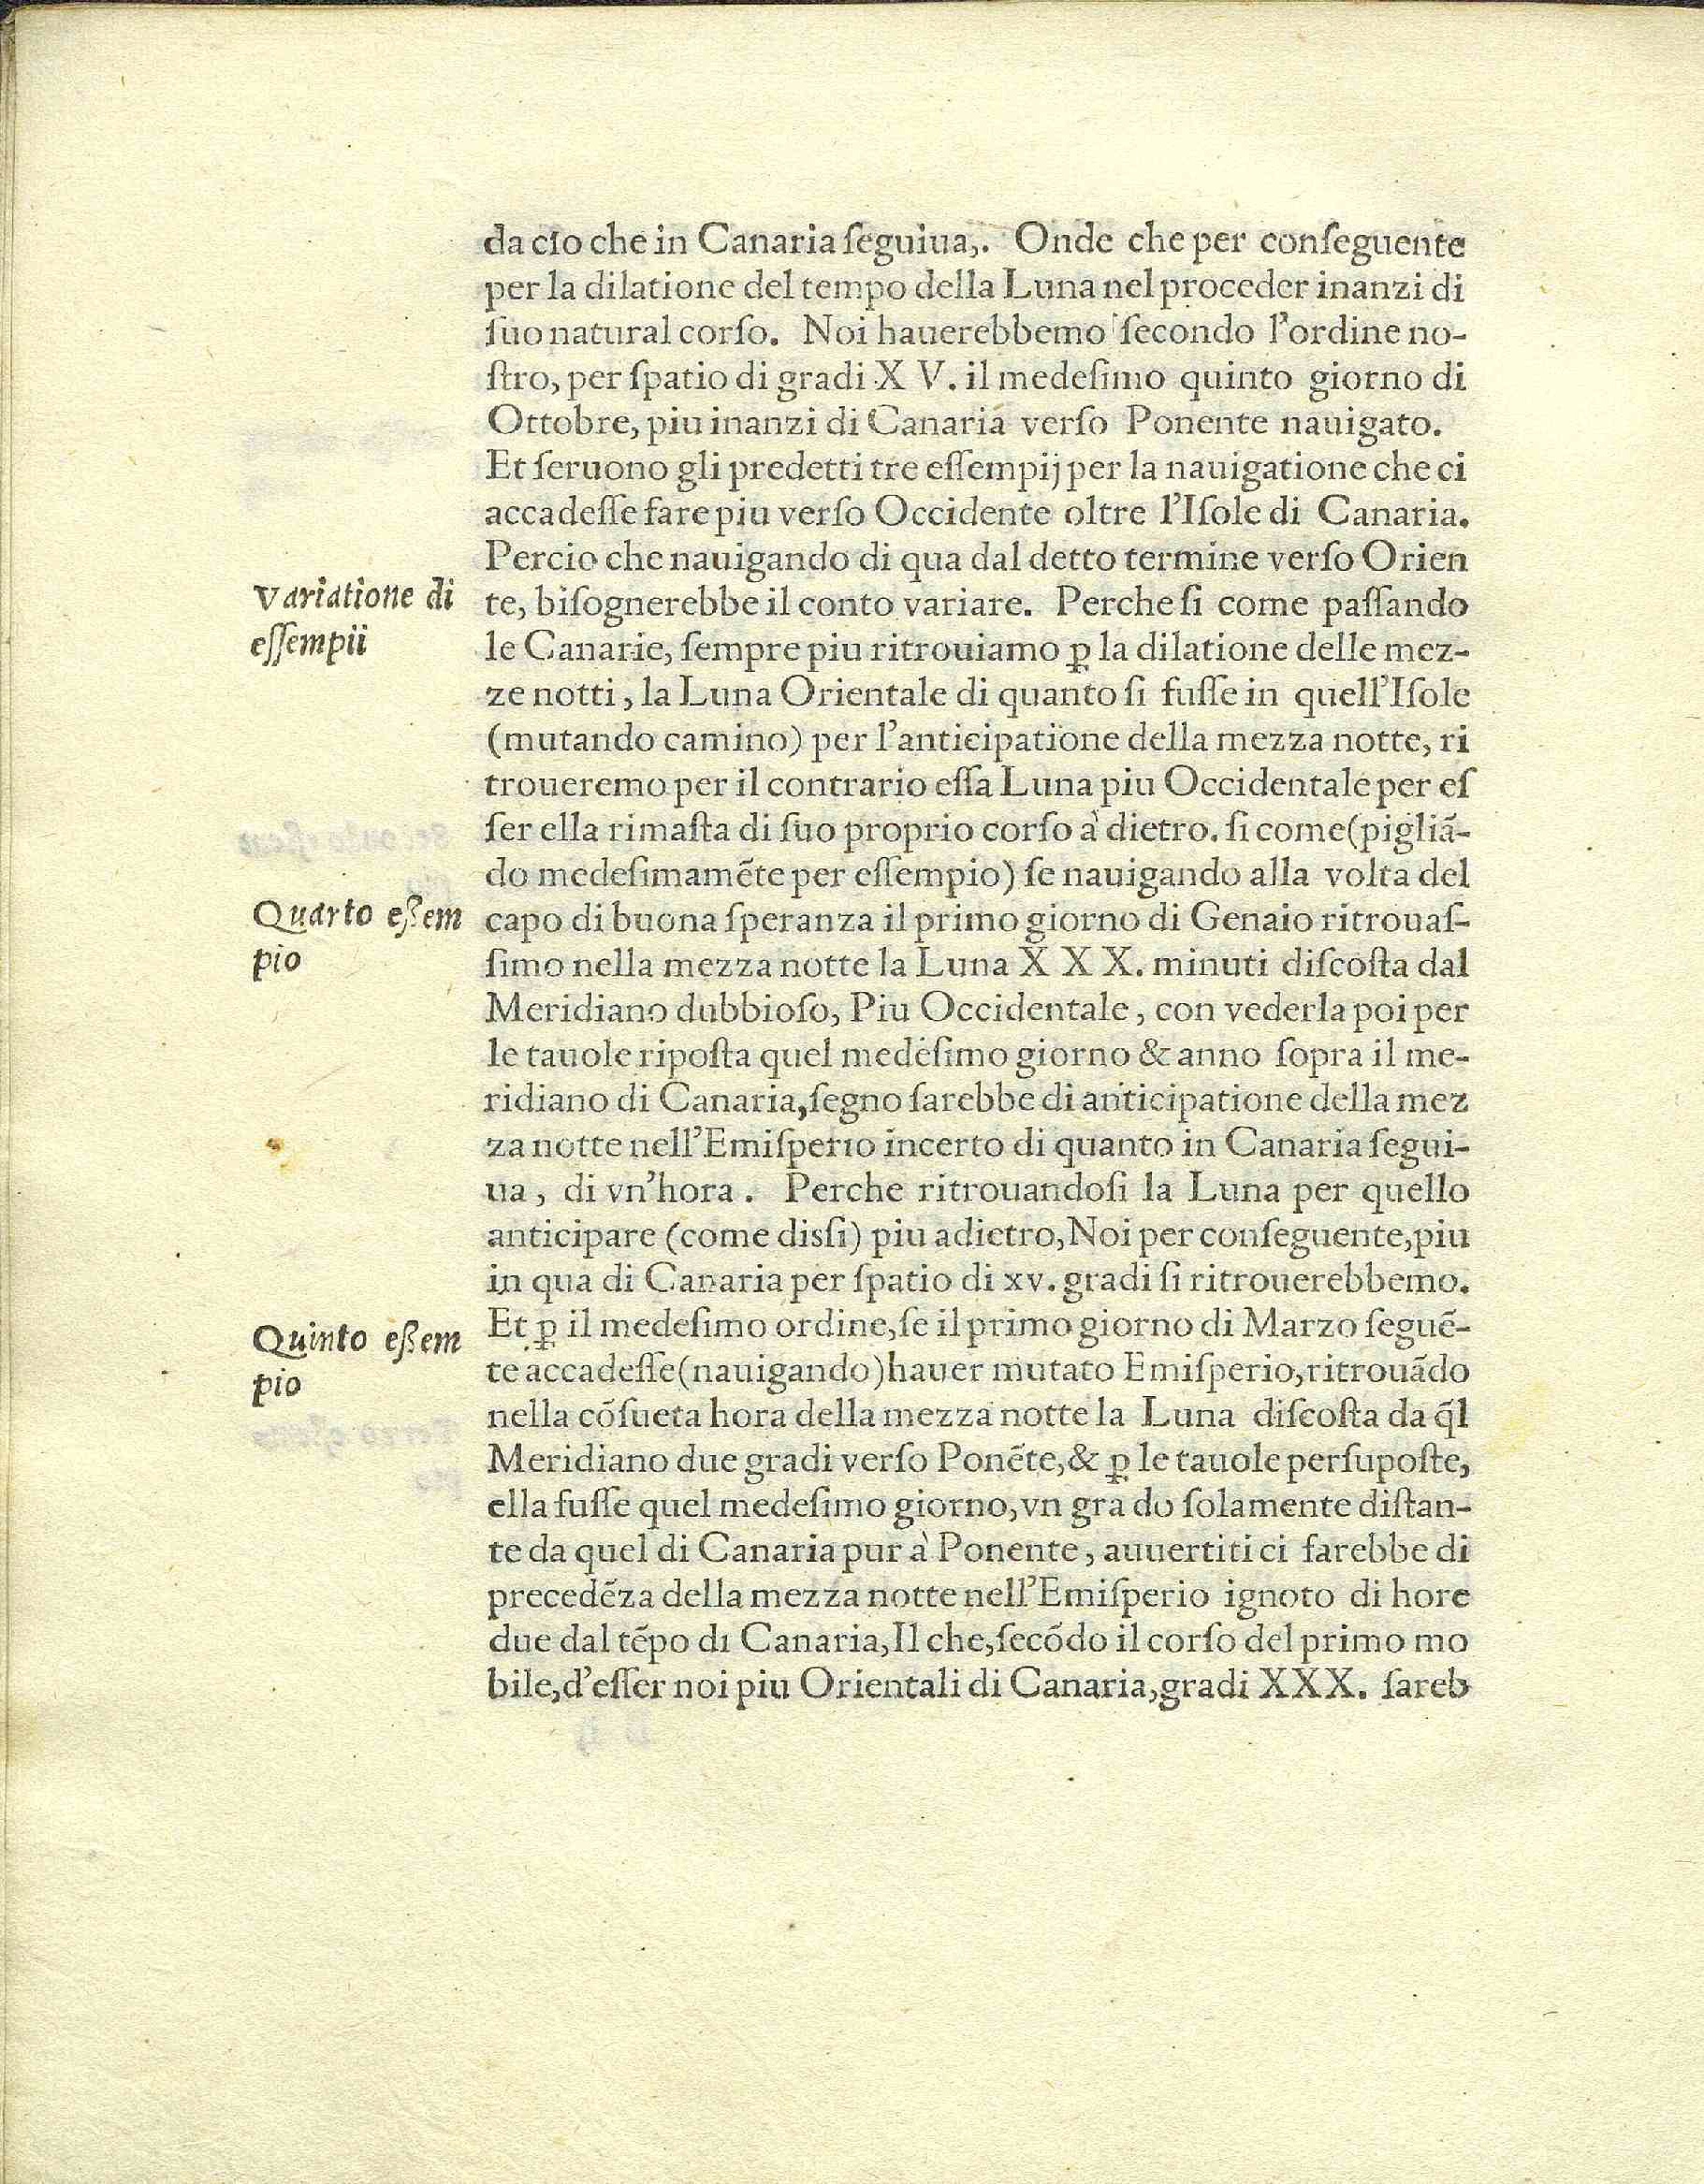 da cio che in Canaria ſeguiua,. Onde che per conſeguente
per la dilatione del tempo della Luna nel proceder inanzi di
ſuo natural corſo. Noi hauerebbemo ſecondo l'ordine no-
ſtro, per ſpatio di gradi X V. il medeſimo quinto giorno di
Ottobre, piu inanzi di Canaria verſo Ponente nauigato.
Et ſeruono gli predetti tre eſſempij per la nauigatione che ci
accadeſſe fare piu verſo Occidente oltre l'Iſole di Canaria.
Percio che nauigando di qua dal detto termine verſo Orien
Variatione di
eſſempii
te, biſognerebbe il conto variare. Perche ſi come paſſando
le Canarie, ſempre piu ritrouiamo ꝑ la dilatione delle mez-
ze notti, la Luna Orientale di quanto ſi fuſſe in quell'Iſole
(mutando camino) per l'anticipatione della mezza notte, ri
troueremo per il contrario eſſa Luna piu Occidentale per eſ
ſer ella rimaſta di ſuo proprio corſo à dietro. ſi come (pigliā-
do medeſimamēte per eſſempio) ſe nauigando alla volta del
Quarto eßem
pio
capo di buona ſperanza il primo giorno di Genaio ritrouaſ-
ſimo nella mezza notte la Luna X X X. minuti diſcoſta dal
Meridiano dubbioſo, Piu Occidentale, con vederla poi per
le tauole ripoſta quel medeſimo giorno & anno ſopra il me-
ridiano di Canaria, ſegno ſarebbe di anticipatione della mez
za notte nell'Emiſperio incerto di quanto in Canaria ſegui-
ua, di vn'hora. Perche ritrouandoſi la Luna per quello
anticipare (come disſi) piu adietro, Noi per conſeguente, piu
in qua di Canaria per ſpatio di xv. gradi ſi ritrouerebbemo.
Quinto eßem
pio
Et ꝑ il medeſimo ordine, ſe il primo giorno di Marzo ſeguē-
te accadeſſe (nauigando) hauer mutato Emiſperio, ritrouādo
nella cōſueta hora della mezza notte la Luna diſcoſta da q̄l
Meridiano due gradi verſo Ponēte, & ꝑ le tauole perſupoſte,
ella fuſſe quel medeſimo giorno, vn gra do ſolamente diſtan-
te da quel di Canaria pur à Ponente, auuertiti ci farebbe di
precedēza della mezza notte nell'Emiſperio ignoto di hore
due dal tēpo di Canaria, Il che, ſecōdo il corſo del primo mo
bile, d'eſſer noi piu Orientali di Canaria, gradi XXX. ſareb